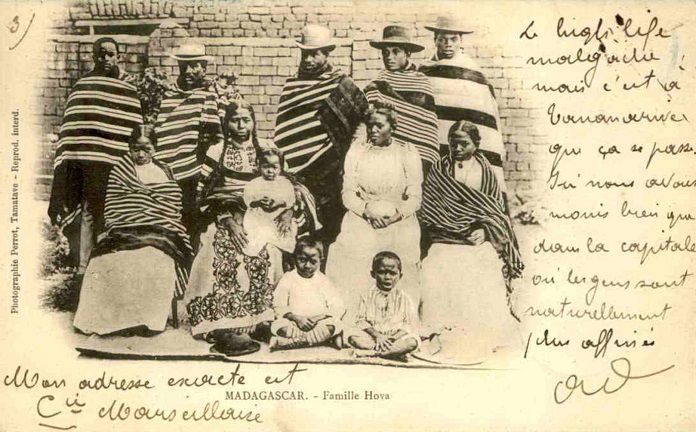 3)
Photographie Perrot, Tamatave - Reprod. interd.
Le high life
malgache
mais c'est à
Tananarive
que ça se passe.
Ici nous avons
moins bien que
dans la capitale
où les gens sont
naturellement
plus affinés
Mon adresse exacte est
Cie Marseillaise
MADAGASCAR. - Famille Hova